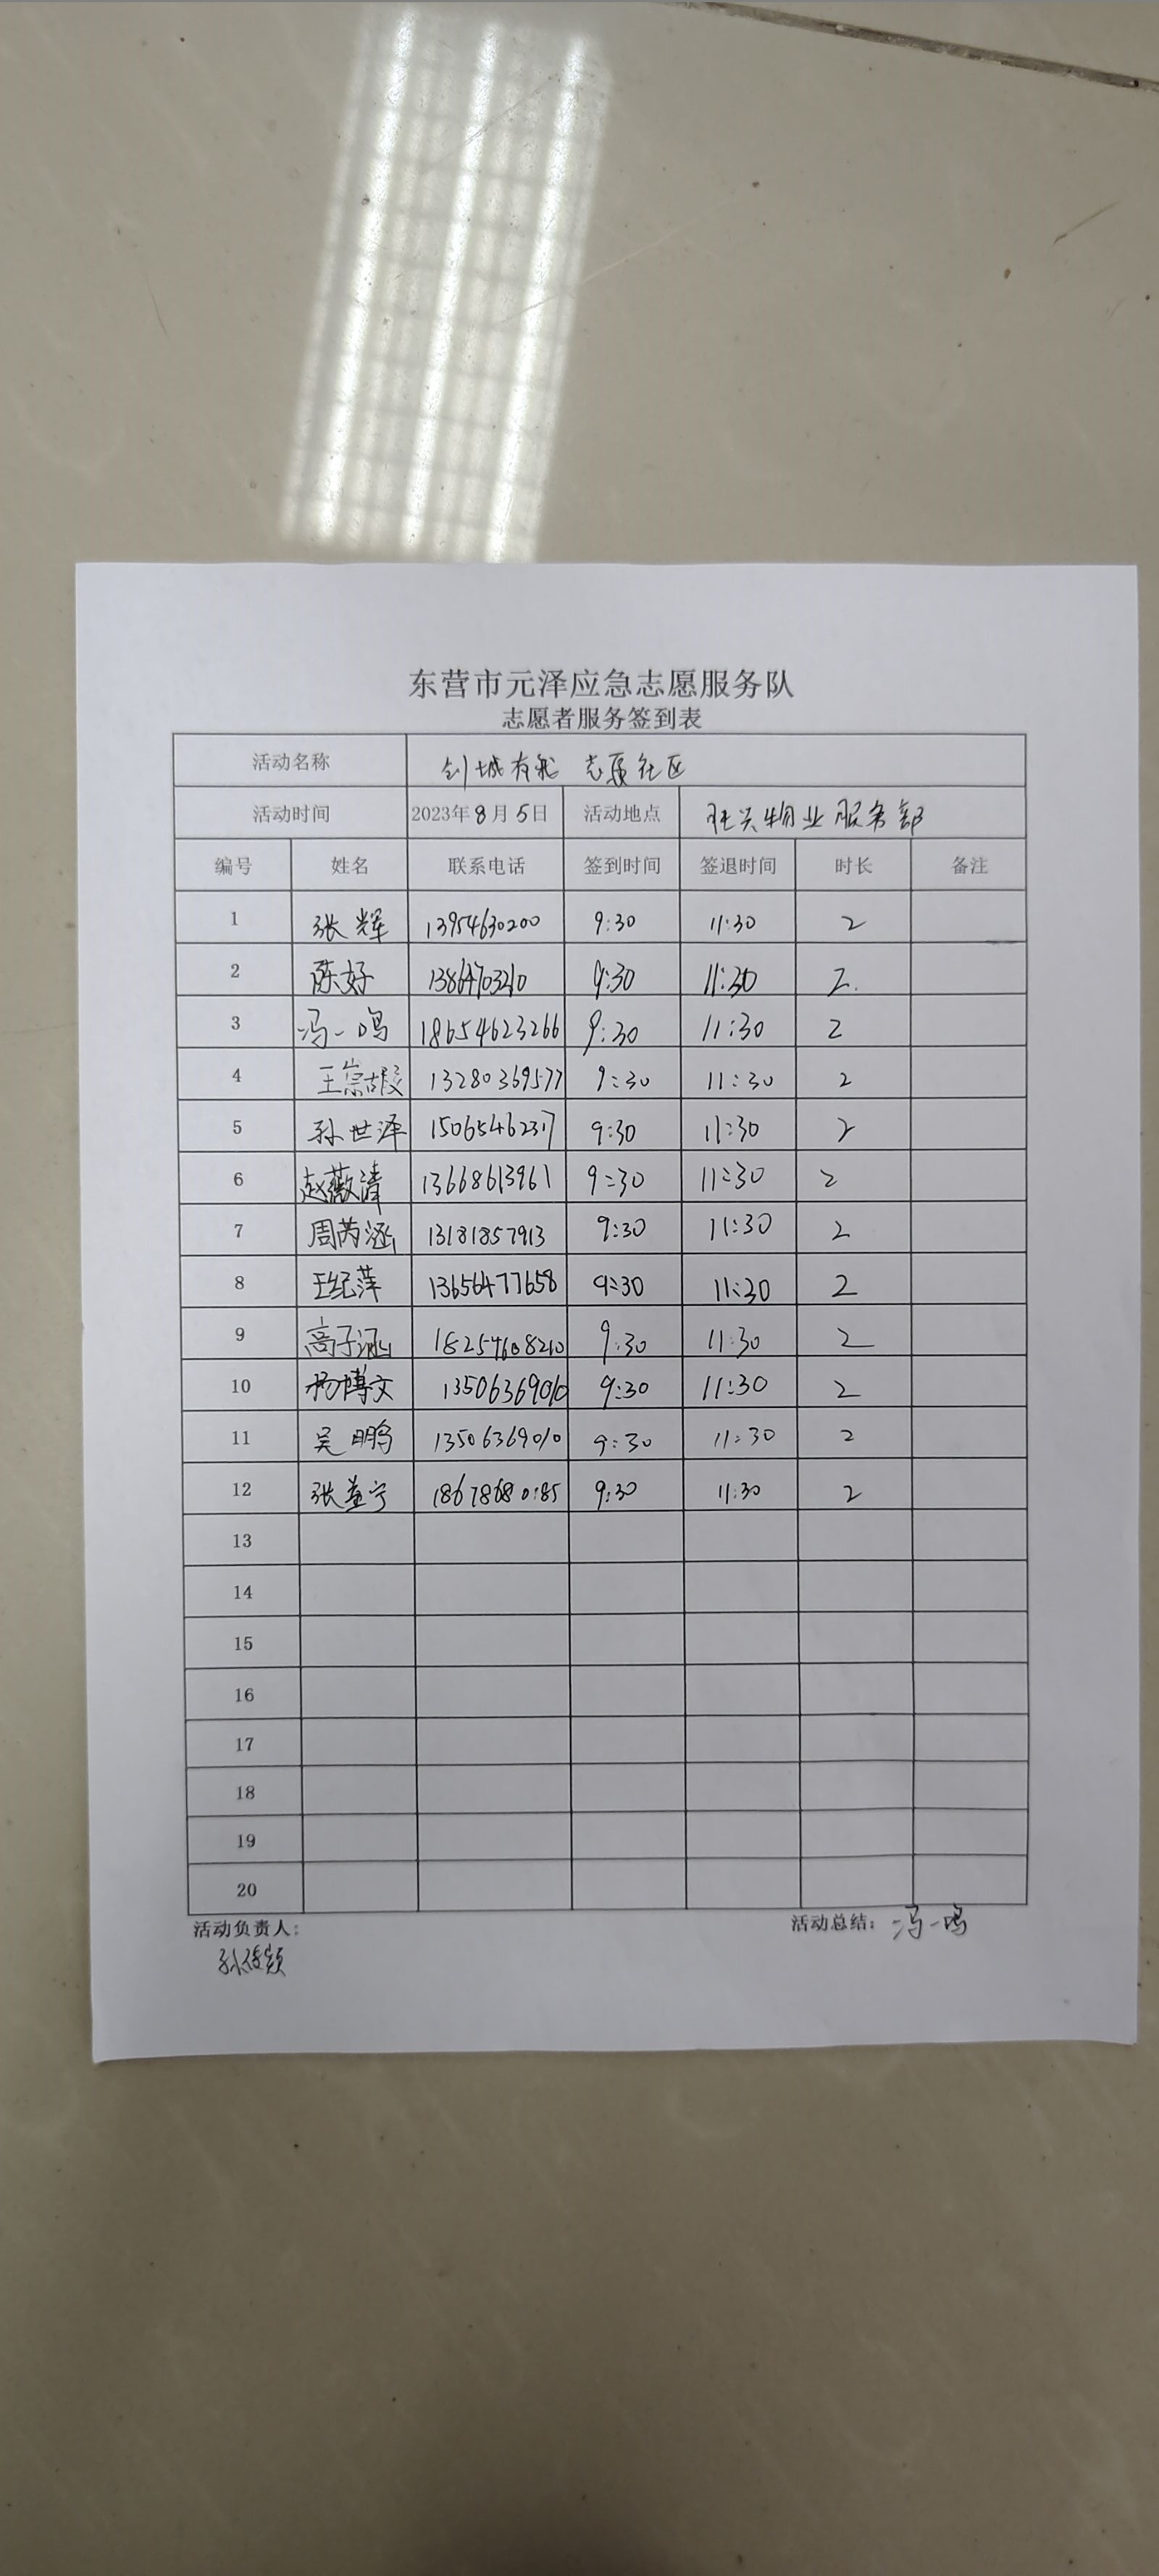 东营市元泽应急志愿服务队
志愿者服务签到表
活动名称 创城有我 志愿社区
活动时间 2023年8月5日 活动地点 旺兴物业服务部
编号 姓名 联系电话 签到时间 签退时间 时长 备注
1 张辉 13954630200 9:30 11:30 2
2 陈好 9:30 11:30 2
3 冯一鸣 18654623266 9:30 11:30 2
4 王崇 13280369577 9:30 11:30 2
5 孙世泽 15065462317 9:30 11:30 2
6 赵薇清 13668613961 9:30 11:30 2
7 周芮涵 13181857913 9:30 11:30 2
8 王纪萍 13656477658 9:30 11:30 2
9 高子涵 18254608210 9:30 11:30 2
10 杨博文 13506369010 9:30 11:30 2
11 吴鹏 13506369010 9:30 11:30 2
12 张 宁 18678680185 9:30 11:30 2
13
14
15
16
17
18
19
20
活动负责人: 活动总结: 冯一鸣
孙